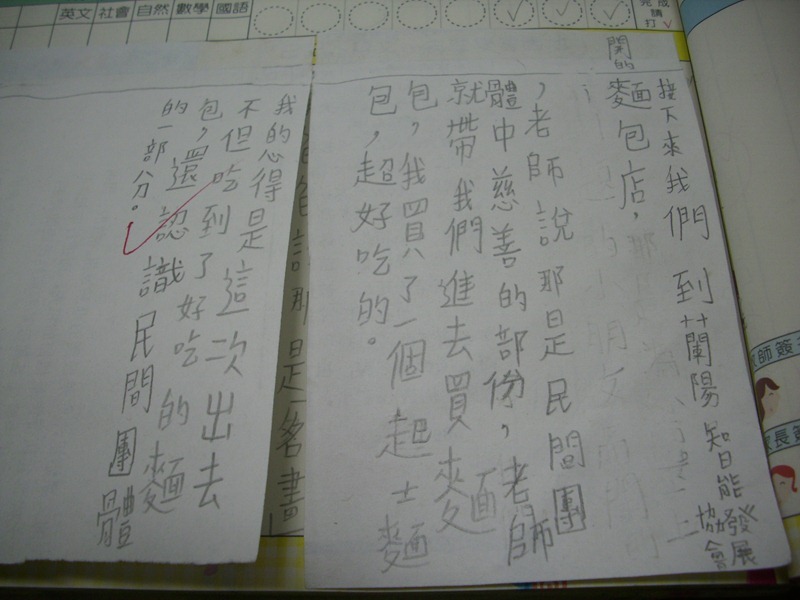 英文 社會 自然 數學 國語
完成請打✓
接下來我們到蘭陽智能發展協會
開的麵包店,
,老師說那是民間團
體中慈善的部份,老師
就帶我們進去買麵
包,我買了一個起士麵
包,超好吃的。
那是一名畫
我的心得是這次出去
不但吃到了好吃的麵
包,還認識民間團體
的一部分。
師簽
長簽